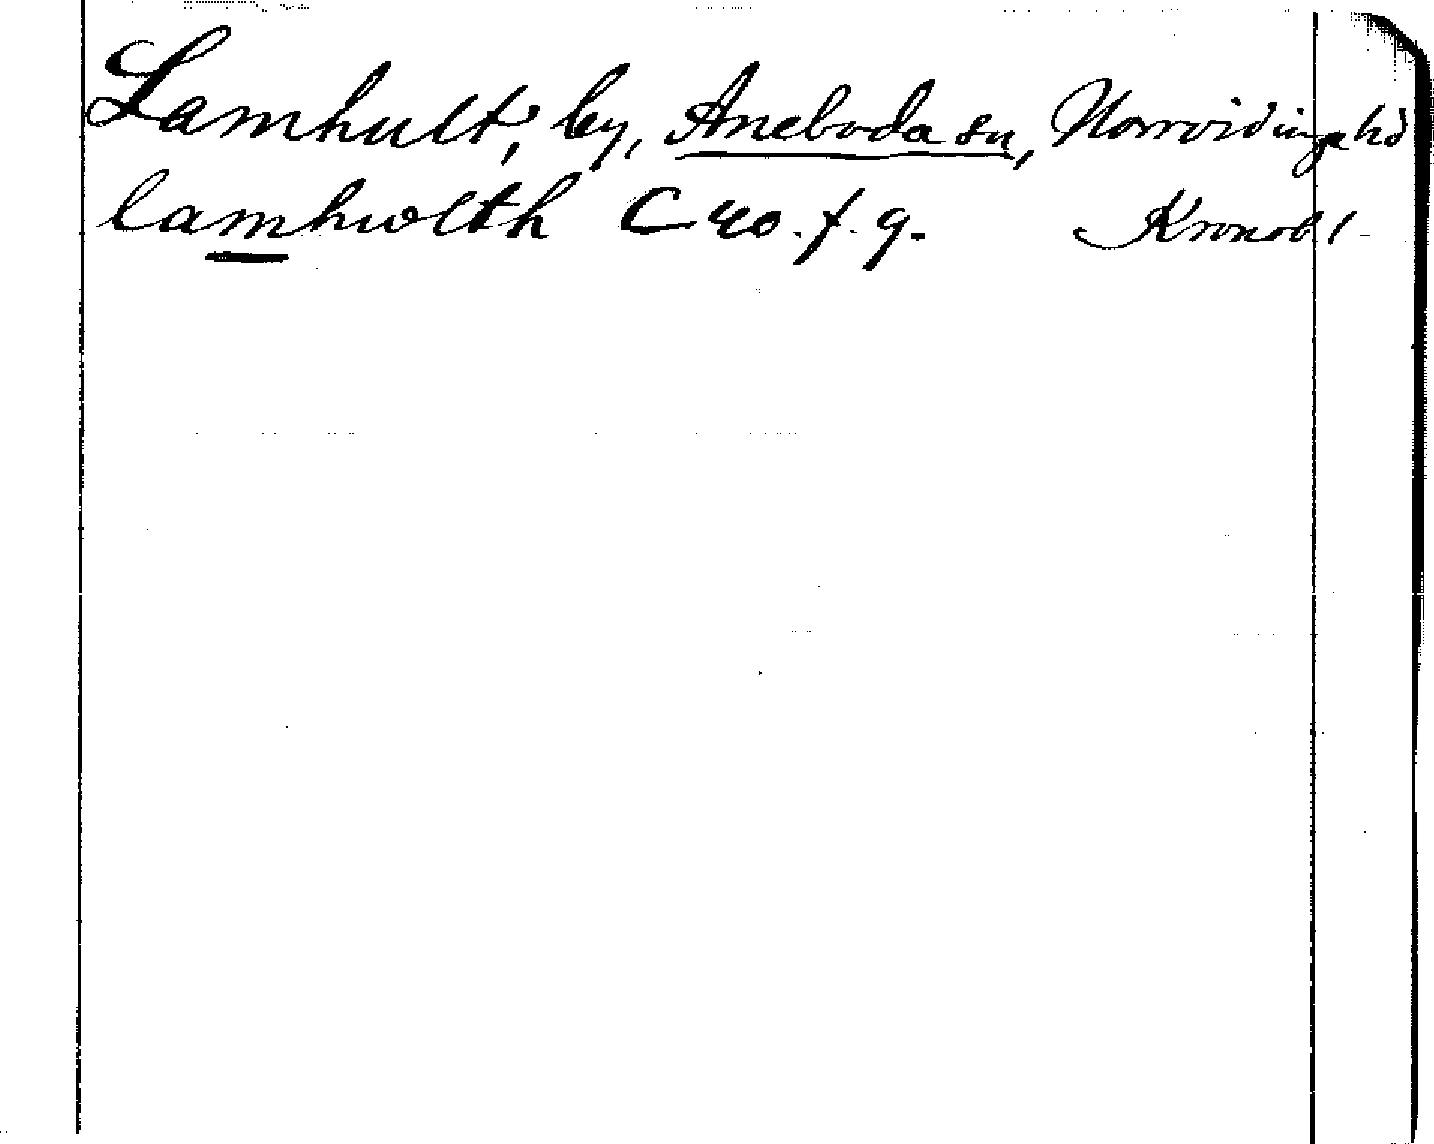 Lamhult, by, Aneboda sn, Norrvidinge hd
lamhwlth C 40. f. 9. Kronob l